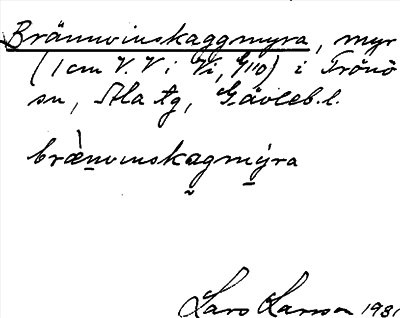 Brännvinskaggmyra, myr
(1 cm V. V i Vi, G110) i Trönö
sn, Ala tg, Gävleb.l.
bræ̀nvinskagmýra
Lars Larsson 1981